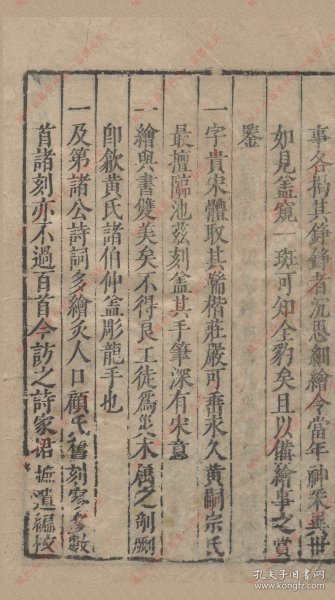 事各揭其錚錚者沉思細繪令當年神采世
如見盖窺一斑可知全豹矣且以備繪事之賞
鑒
一字貴宋體取其端楷莊嚴可垂永久黃嗣宗氏
最擅臨池茲刻盖其手筆深有宋意
一繪與書雙美矣不得良工徒為災木屬之剞劂
即歙黃氏諸伯仲盖彫龍手也
一及第諸公詩詞多繪炙人口顧氏舊刻寥寥數
首諸刻亦不過百首今訪之詩家摭遺編校
孔夫子旧书网